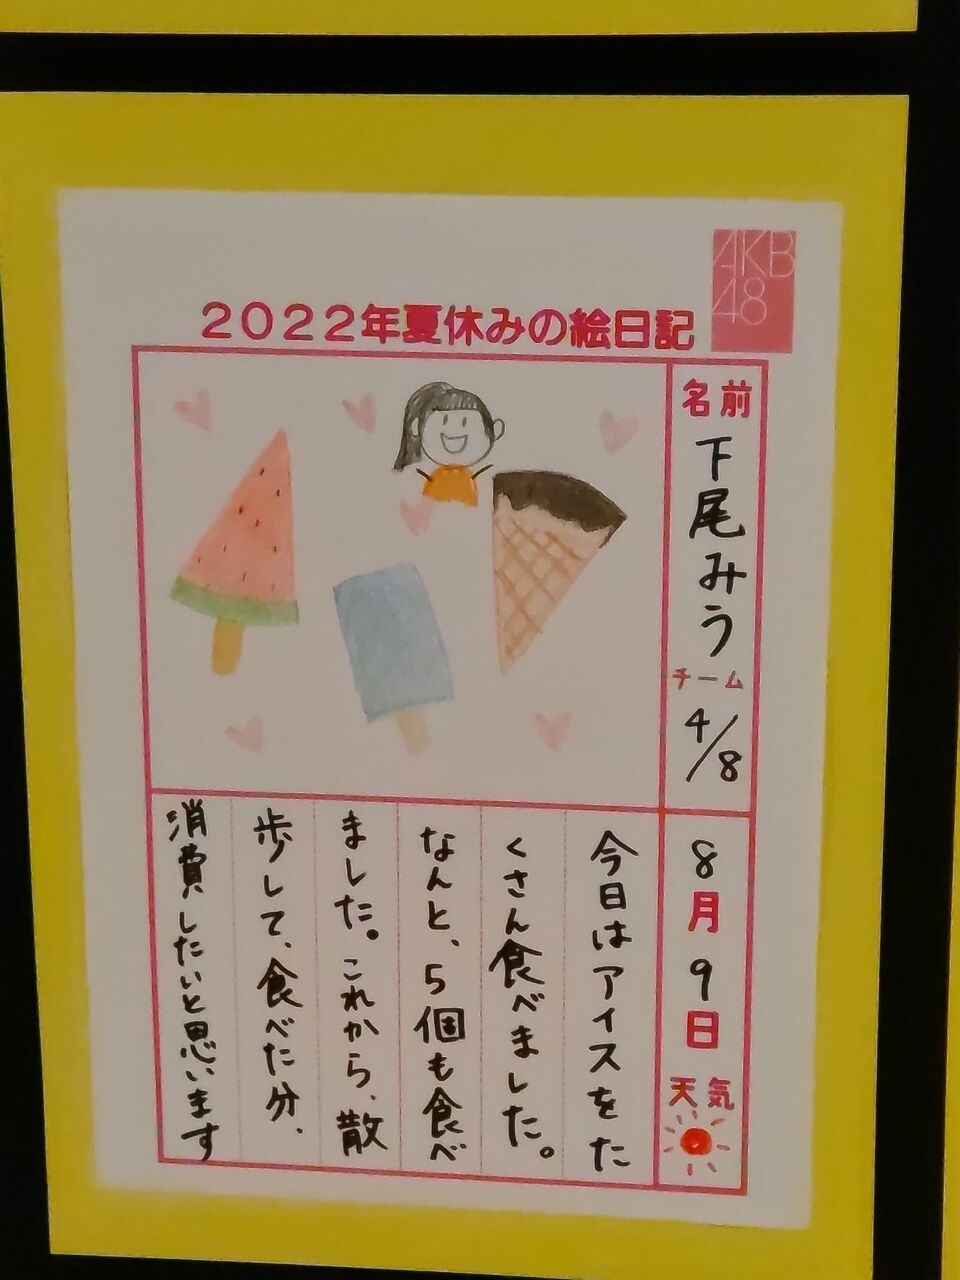 AKB
48
2022年夏休みの絵日記
名前
下尾みう
チーム
4/8
8月9日
天気
今日はアイスをた
くさん食べました。
なんと、5個も食べ
ました。これから、散
歩して、食べた分、
消費したいと思います